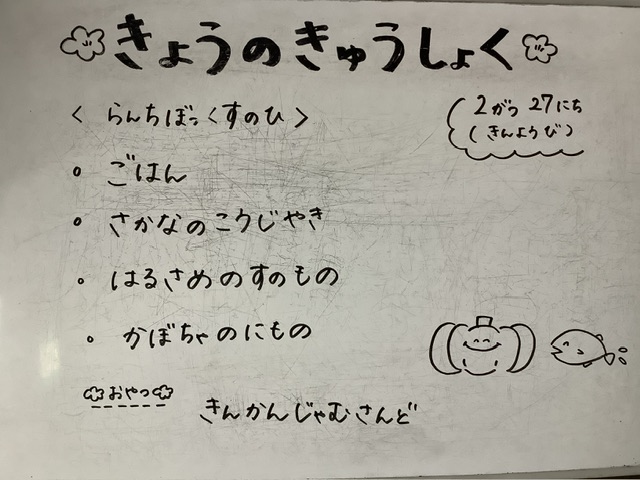 きょうのきゅうしょく
2がつ 27にち
(きんようび)
< らんちぼっくすのひ >
。ごはん
。さかなのこうじやき
。はるさめのすのもの
。かぼちゃのにもの
おやつ
きんかんじゃむさんど